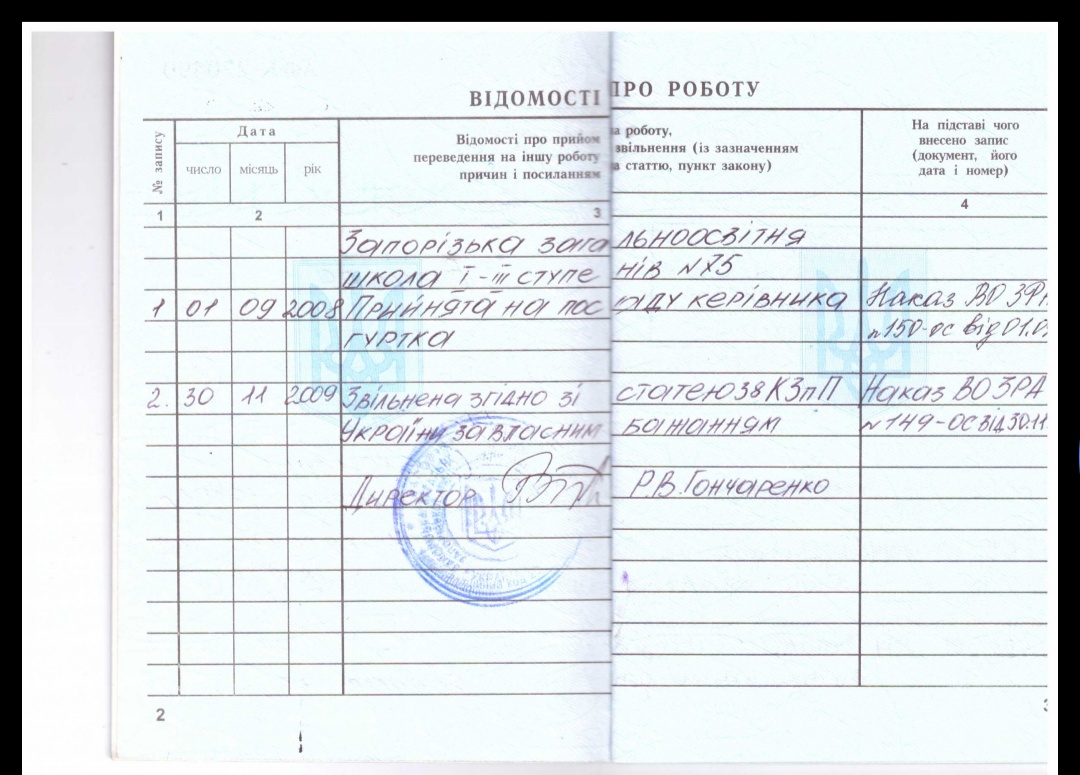 ВІДОМОСТІ ПРО РОБОТУ
№ запису
Дата
число місяць рік
Відомості про прийом а роботу,
переведення на іншу роботу звільнення (із зазначенням
причин і посиланням а статтю, пункт закону)
На підставі чого
внесено запис
(документ, його
дата і номер)
1 2 3 4
Запорізька зага льноосвітня
школа І-ІІІ ступе нів №75
1 01 09 2008 Прийнята на пос аду керівника Наказ ВО
гуртка №150-ос від 01.0
2. 30 11 2009 Звільнена згідно зі статею 38 КЗпП Наказ ВО ЗРА
України за власним бажанням №149-ос від 30.11.
Директор Р.В. Гончаренко
2